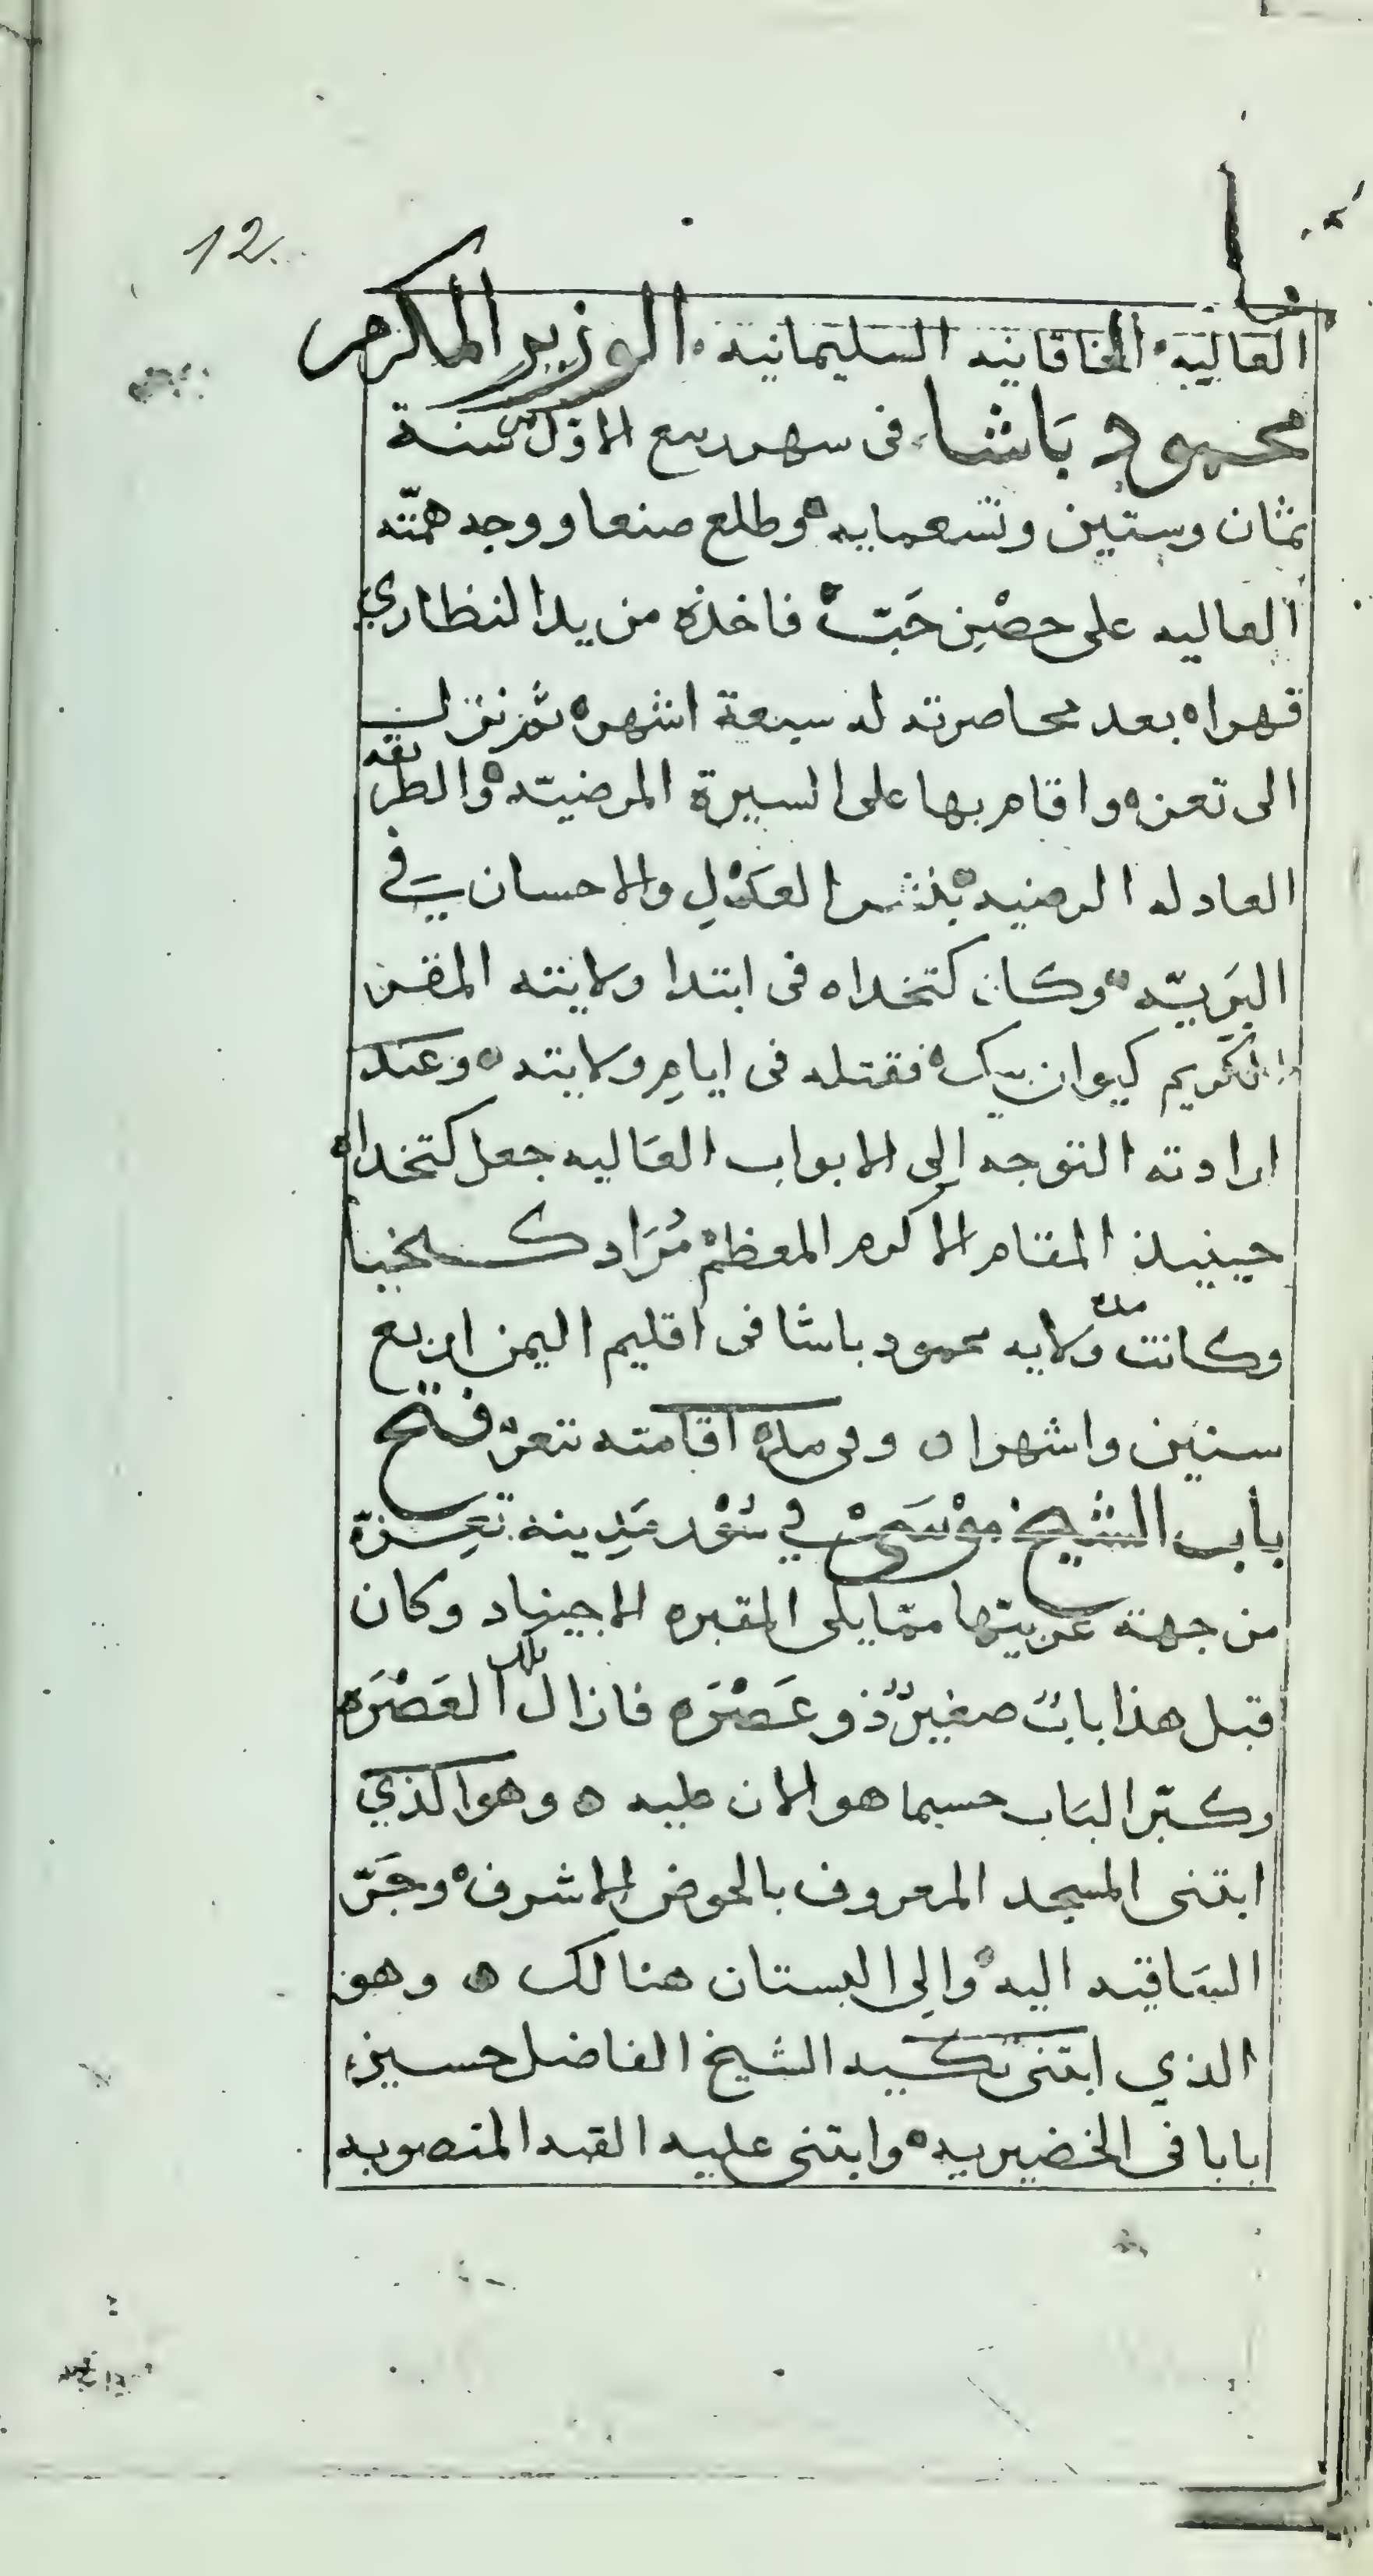 12
العالية الخاقانيه السليمانية الوزير المكرم
محمود باشا في شهر ربيع الاول من سنة
ثمان وستين وتسعمايه وطلع صنعا ووجه همّته
العاليه على حصن حَبّ فاخذه من يد النظاري
قهرا بعد محاصرته له سبعة اشهر ثم نزل
الى تعز واقام بها على السيرة المرضيّه والطريقه
العادله الرضيه بنشر العَدْلِ والاحسان في
البَريّه وكان كتخداه في ابتدا ولايته المقر
الكريم كيوان بيك فقتله في ايامِ ولايته وعند
ارادته التوجه اِلى الابواب العَاليه جعل كتخداه
حينيذ المقام الاكرم المعظم مُرَاد كيخيا
وكانت مدة ولايه محمود باشا في اقليم اليمن اربع
سنين واشهرا وفي مدة اقامته بتعز فتح
باب الشيخ موْسَى في سُوْر مَدِينه تَعِز
من جهة غربيّها ممّا يلي المقبره الاجيناد وكان
قبل هذا بابٌ صغيرٌ ذو عَصْرَه فازال تلك العَصْرَه
وكبّر الباب حسبما هو الان عليه وهو الذي
ابتنى المسجد المعروف بالحوض الاشرف وجَرّ
السَاقيه اليه والى البستان هنالك وهو
الذي ابتنى تكييه الشيخ الفاضل حسين
بابا في الخضيريه وابتنى عليه القبه المنصوبه